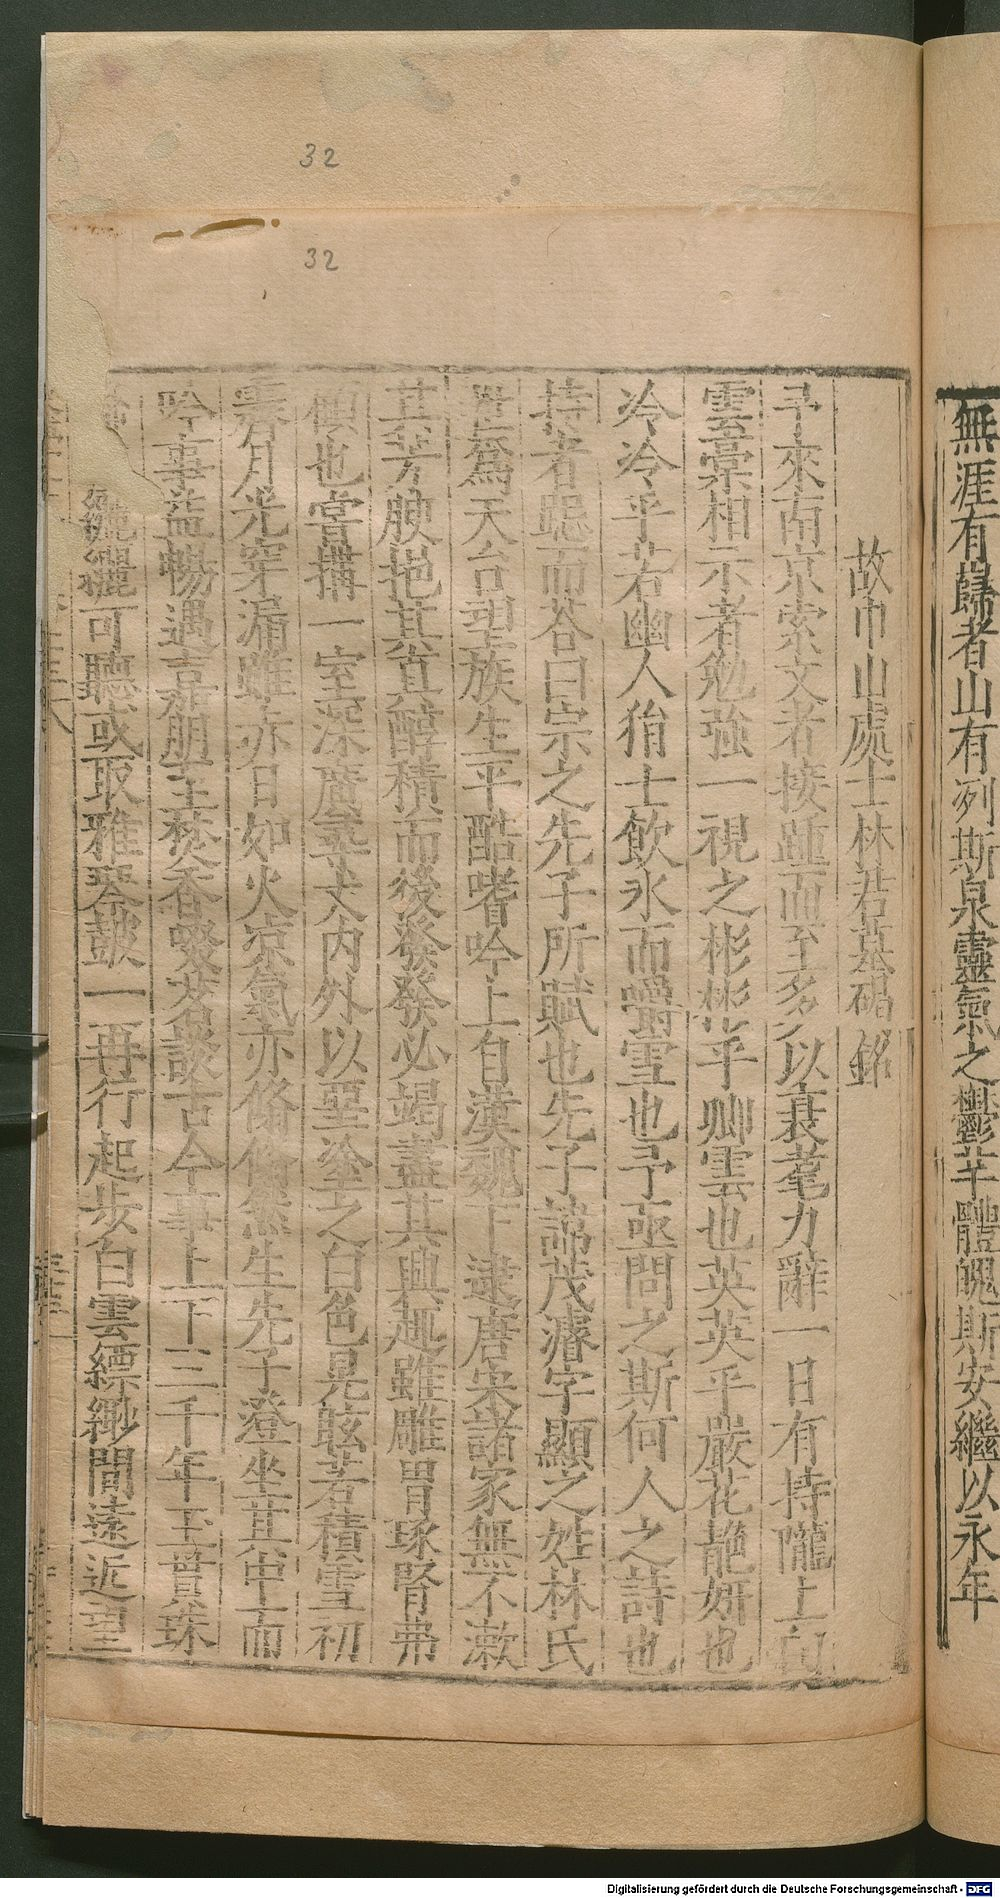 32
32
無涯有歸者山有列斯泉靈氣之鬱芊體魄斯安繼以永年
故巾山處士林君墓碣銘
予來南京索文者接踵而至多以衰耄力辭一日有持隴上白
雲藁相示者勉強一視之彬彬乎卿雲也英英乎嚴花靘妍也
冷冷乎若幽人狷士飲冰而嚼雪也予亟問之斯何人之詩也
持者跽而荅曰宗之先子所賦也先子諱茂濬字顯之姓林氏
世爲天台望族生平酷嗜吟上自漢魏下逮唐宋諸家無不漱
其芳腴挹其道醇積而後發發必竭盡其興趣雖雕胃琢腎弗
顧也嘗搆一室深廣尋丈內外以堊塗之白色晃眩若積雪初
霽月光穿漏雖亦日如火凉氣亦翛翛然生先子澄坐其中而
吟事益暢遇嘉朋至焚香啜茗談古今事上下三千年玉貫珠
纚纚可聽或取雅琴鼓一再行起步白雲縹緲間遠近望
Digitalisierung gefördert durch die Deutsche Forschungsgemeinschaft - DFG